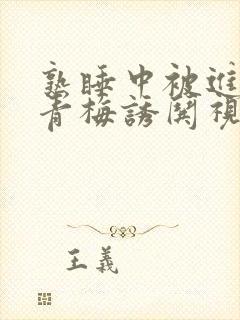 熟睡中被進
青梅誘関視
王義